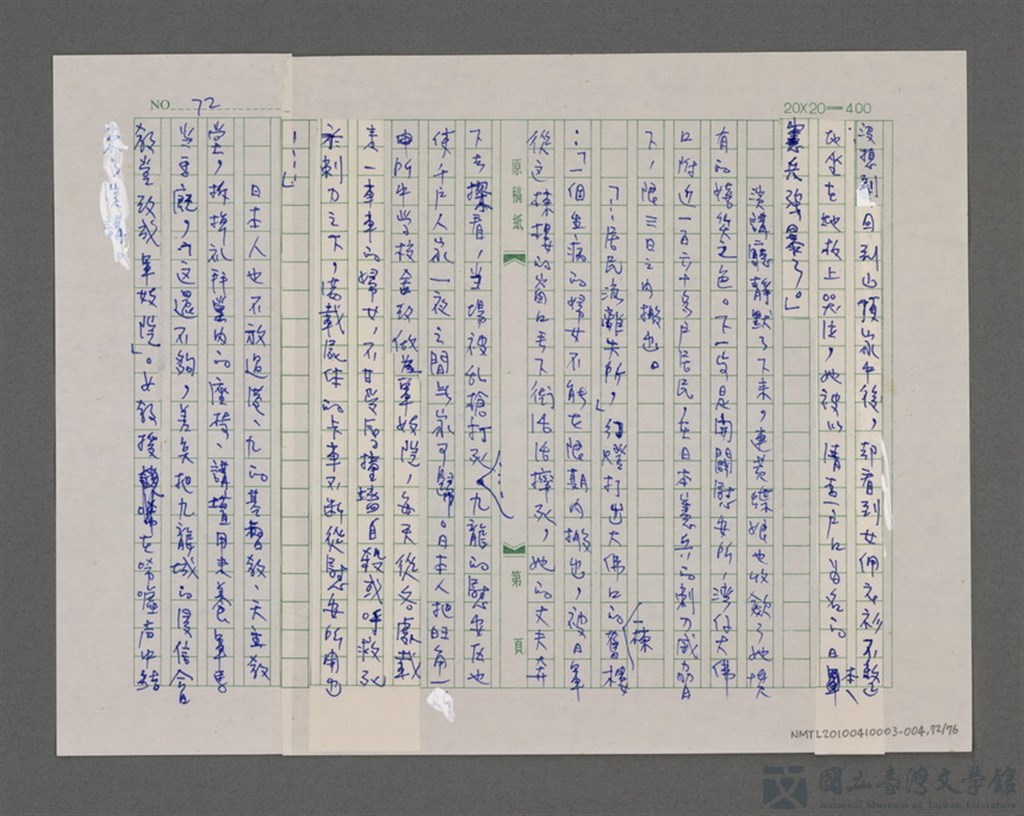 NO. 72
20X20=400
沒想到回到山頂家中後,却看到女佣衣衫不整
地坐在地板上哭泣,她被以清查户口為名的日本
憲兵強暴了。」
演講廳靜默了下來,連黃蝶娘也收歛了她慣
有的嬉笑之色。下一段是開闢慰安所,灣仔大佛
口附近一百六十多户居民,在日本憲兵的刺刀威脅
下,限三日之內搬出。
「…居民流離失所,」幻燈打出大佛口的一棟舊樓
:「一個生病的婦女不能在限期內搬出,被日軍
從這棟樓的窗口丟下街活活摔死,她的丈夫奔
原稿紙
第 頁
下去察看,當場被乱槍打死……九龍的慰安區也
使千户人家一夜之間無家可歸。日本人把旺角一
所中学校舍改做為軍妓院,每天從各處載
走一車車的婦女,不甘受辱撞牆自殺或呼救死
於刺刀之下,滿載屍体的卡車不断從慰安所開出
……」
日本人也不放過港、九的基督教、天主教
堂,拆掉礼拜堂內的座椅、講壇用來養軍馬
当馬廄,「這還不夠,差矣把九龍城的浸信會
教堂改成軍妓院」。女教授在唏噓声中結
NMTL20100410003-004,72/76
國立臺灣文學館
National Museum of Taiwan Literature